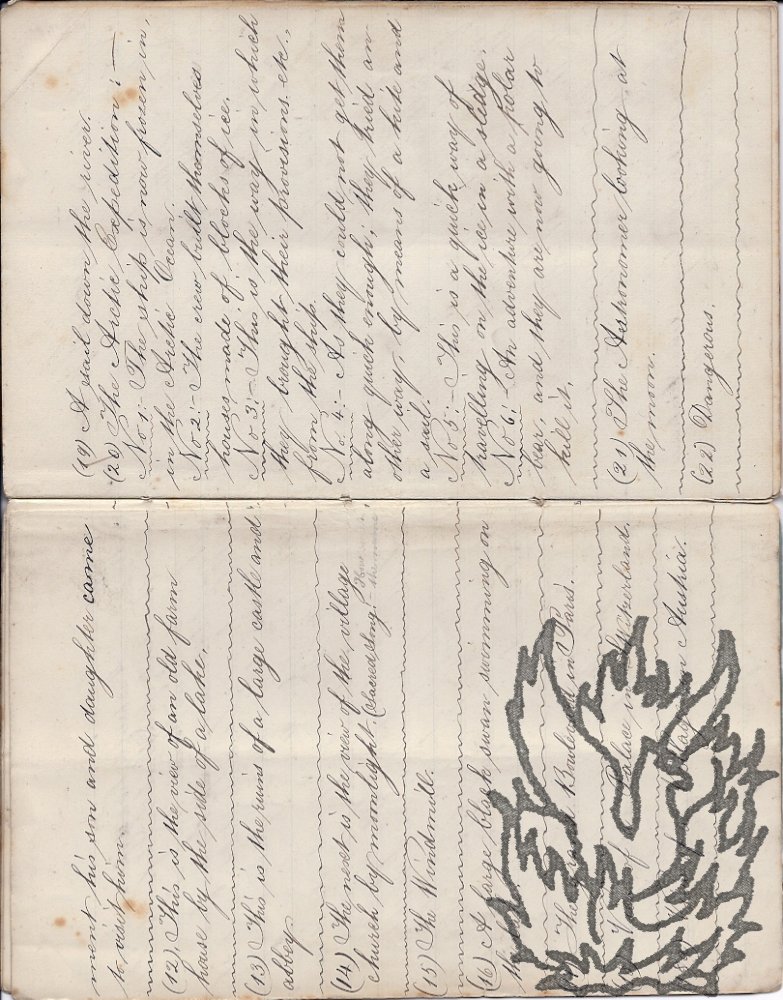 ment his son and daughter came
to visit him.
(12) This is the view of an old farm
house by the side of a lake.
(13) This is the ruins of a large castle and
abbey.
(14) The next is the view of the village
church by moonlight. (Sacred Song:-
(15) The Windmill.
(16) A large black swan swimming on
Boulevard in Paris.
Palace in
Austria.
(19) A sail down the river.
(20) The Arctic Expedition:-
No 1:- The ship is now frozen in,
in the Arctic Ocean.
No 2:- The crew built themselves
houses made of blocks of ice.
No 3:- This is the way in which
they brought their provisions etc.,
from the ship.
No. 4:- As they could not get them
along quick enough; they tried an
other way, by means of a kite and
a sail.
No 5:- This is a quick way of
travelling on the ice in a sledge.
No 6:- An adventure with a polar
bear, and they are now going to
kill it.
(21) The Astronomer looking at
the moon.
(22) Dangerous.